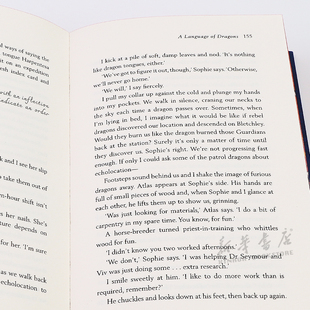 d ways of saying the
tongue Harpentesa
it on an expedition
ish index card and
with an inflection
indicate an order
k and I see her slip
o take them out of
en-hour shift isn't
ges her nails. She's
ture depends on
for her. 'I'm sure
as we walk back
echolocation to
A Language of Dragons 155
I kick at a pile of soft, damp leaves and nod. 'It's nothing
like dragon tongues, either.'
'We've got to figure it out, though,' Sophie says. 'Otherwise,
we'll never go home.'
'We will,' I say fiercely.
I pull my collar up against the cold and plunge my hands
into my pockets. We walk in silence, craning our necks to
the sky each time a dragon passes over. Sometimes, when
I'm lying in bed, I imagine what it would be like if rebel
dragons discovered our location and descended on Bletchley.
Would they burn us like the dragon burned those Guardians
back at the station? Surely it's only a matter of time until
they discover us. Sophie's right. We're not progressing fast
enough. If only I could ask some of the patrol dragons about
echolocation—
Footsteps sound behind us and I shake the image of furious
dragons away. Atlas appears at Sophie's side. His hands are
full of small pieces of wood and, when Sophie and I glance at
each other, he lifts them up to show us, grinning.
'Was just looking for materials,' Atlas says. 'I do a bit of
carpentry in my spare time. You know, for fun.'
A horse-breeder turned priest-in-training who whittles
wood for fun.
'I didn't know you two worked afternoons.'
'We don't,' Sophie says. 'I was helping Dr Seymour and
Viv was just doing some . . . extra research.'
I smile sweetly at him. 'I like to do more work than is
required, remember?'
He chuckles and looks down at his feet, then back up again.